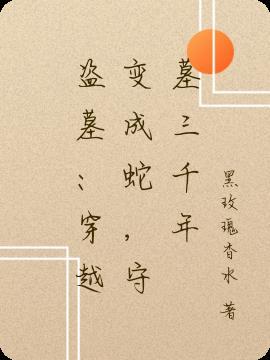 盗墓；穿越
变成蛇，守
墓三千年
黑玫瑰香水 著